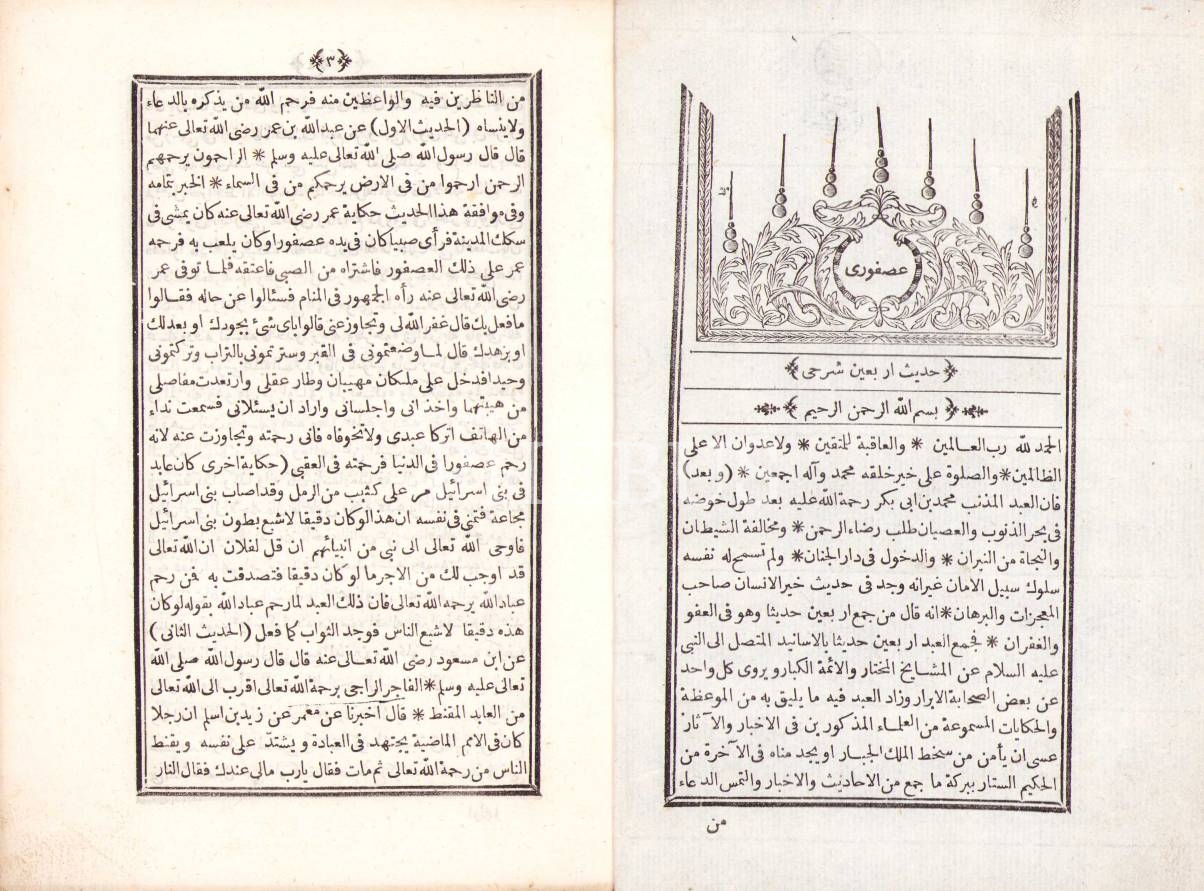 عصفورى
حديث اربعين شرحى
بسم الله الرحمن الرحيم
الحمد لله رب العالمين * والعاقبة للمتقين * ولاعدوان الا على
الظالمين * والصلوة على خير خلقه محمد وآله اجمعين * (وبعد)
فان العبد المذنب محمد بن ابى بكر رحمة الله عليه بعد طول خوضه
فى بحر الذنوب والعصيان طلب رضاء الرحمن * ومخالفة الشيطان
والنجاة من النيران * والدخول فى دار الجنان * ولم تسمح له نفسه
سلوك سبيل الامان غيرانه وجد فى حديث خير الانسان صاحب
المعجزات والبرهان * انه قال من جمع اربعين حديثا وهو فى العفو
والغفران * فجمع العبد اربعين حديثا بالاسانيد المتصل الى النبى
عليه السلام عن المشايخ المختار والائمة الكبار ويروى كل واحد
عن بعض الصحابة الابرار وزاد العبد فيه ما يليق به من الموعظة
والحكايات المسموعة من العلماء المذكورين فى الاخبار والآثار
عسى ان يأمن من سخط الملك الجبار او يجد مناه فى الآخرة من
الحكيم الستار ببركة ما جمع من الاحاديث والاخبار والتمس الدعاء
من
٣
من الناظرين فيه والواعظين منه فرحم الله من يذكره بالدعاء
ولاينساه (الحديث الاول) عن عبدالله بن عمر رضى الله تعالى عنهما
قال قال رسول الله صلى الله تعالى عليه وسلم * الراحمون يرحمهم
الرحمن ارحموا من فى الارض يرحمكم من فى السماء * الخبر بتمامه
وفى موافقة هذا الحديث حكاية عمر رضى الله تعالى عنه كان يمشى فى
سكك المدينة فرأى صبيا كان فى يده عصفورا وكان يلعب به فرحمه
عمر على ذلك العصفور فاشتراه من الصبى فاعتقه فلما توفى عمر
رضى الله تعالى عنه رأه الجمهور فى المنام فسئالوا عن حاله فقالوا
ما فعل بك قال غفر الله لى وتجاوز عنى قالوا باى شئ بجودك او بعدلك
او بزهدك قال لما وضعتمونى فى القبر وسترتمونى بالتراب وتركتمونى
وحيدا فدخل على ملكان مهيبان وطار عقلى وارتعدت مفاصلى
من هيبتهما واخذانى واجلسانى واراد ان يسئلانى فسمعت نداء
من الهاتف اتركا عبدى ولا تخوفاه فانى رحمته وتجاوزت عنه لانه
رحم عصفورا فى الدنيا فرحمته فى العقبى (حكاية اخرى كان عابد
فى بنى اسرائيل مر على كثيب من الرمل وقد اصاب بنى اسرائيل
مجاعة فتمنى فى نفسه ان هذا لو كان دقيقا لاشبع بطون بنى اسرائيل
فاوحى الله تعالى الى نبى من انبيائهم ان قل لفلان ان الله تعالى
قد اوجب لك من الاجر ما لو كان دقيقا فتصدقت به فمن رحم
عباد الله يرحمه الله تعالى فان ذلك العبد لما رحم عباد الله بقوله لو كان
هذه دقيقا لاشبع الناس فوجد الثواب كما فعل (الحديث الثانى)
عن ابن مسعود رضى الله تعالى عنه قال قال رسول الله صلى الله
تعالى عليه وسلم * الفاجر الراجى برحمة الله تعالى اقرب الى الله تعالى
من العابد المقنط * قال اخبرنا عن معمر عن زيد بن اسلم ان رجلا
كان فى الامم الماضية يجتهد فى العبادة ويشتد على نفسه ويقنط
الناس من رحمة الله تعالى ثم مات فقال يارب مالى عندك فقال النار